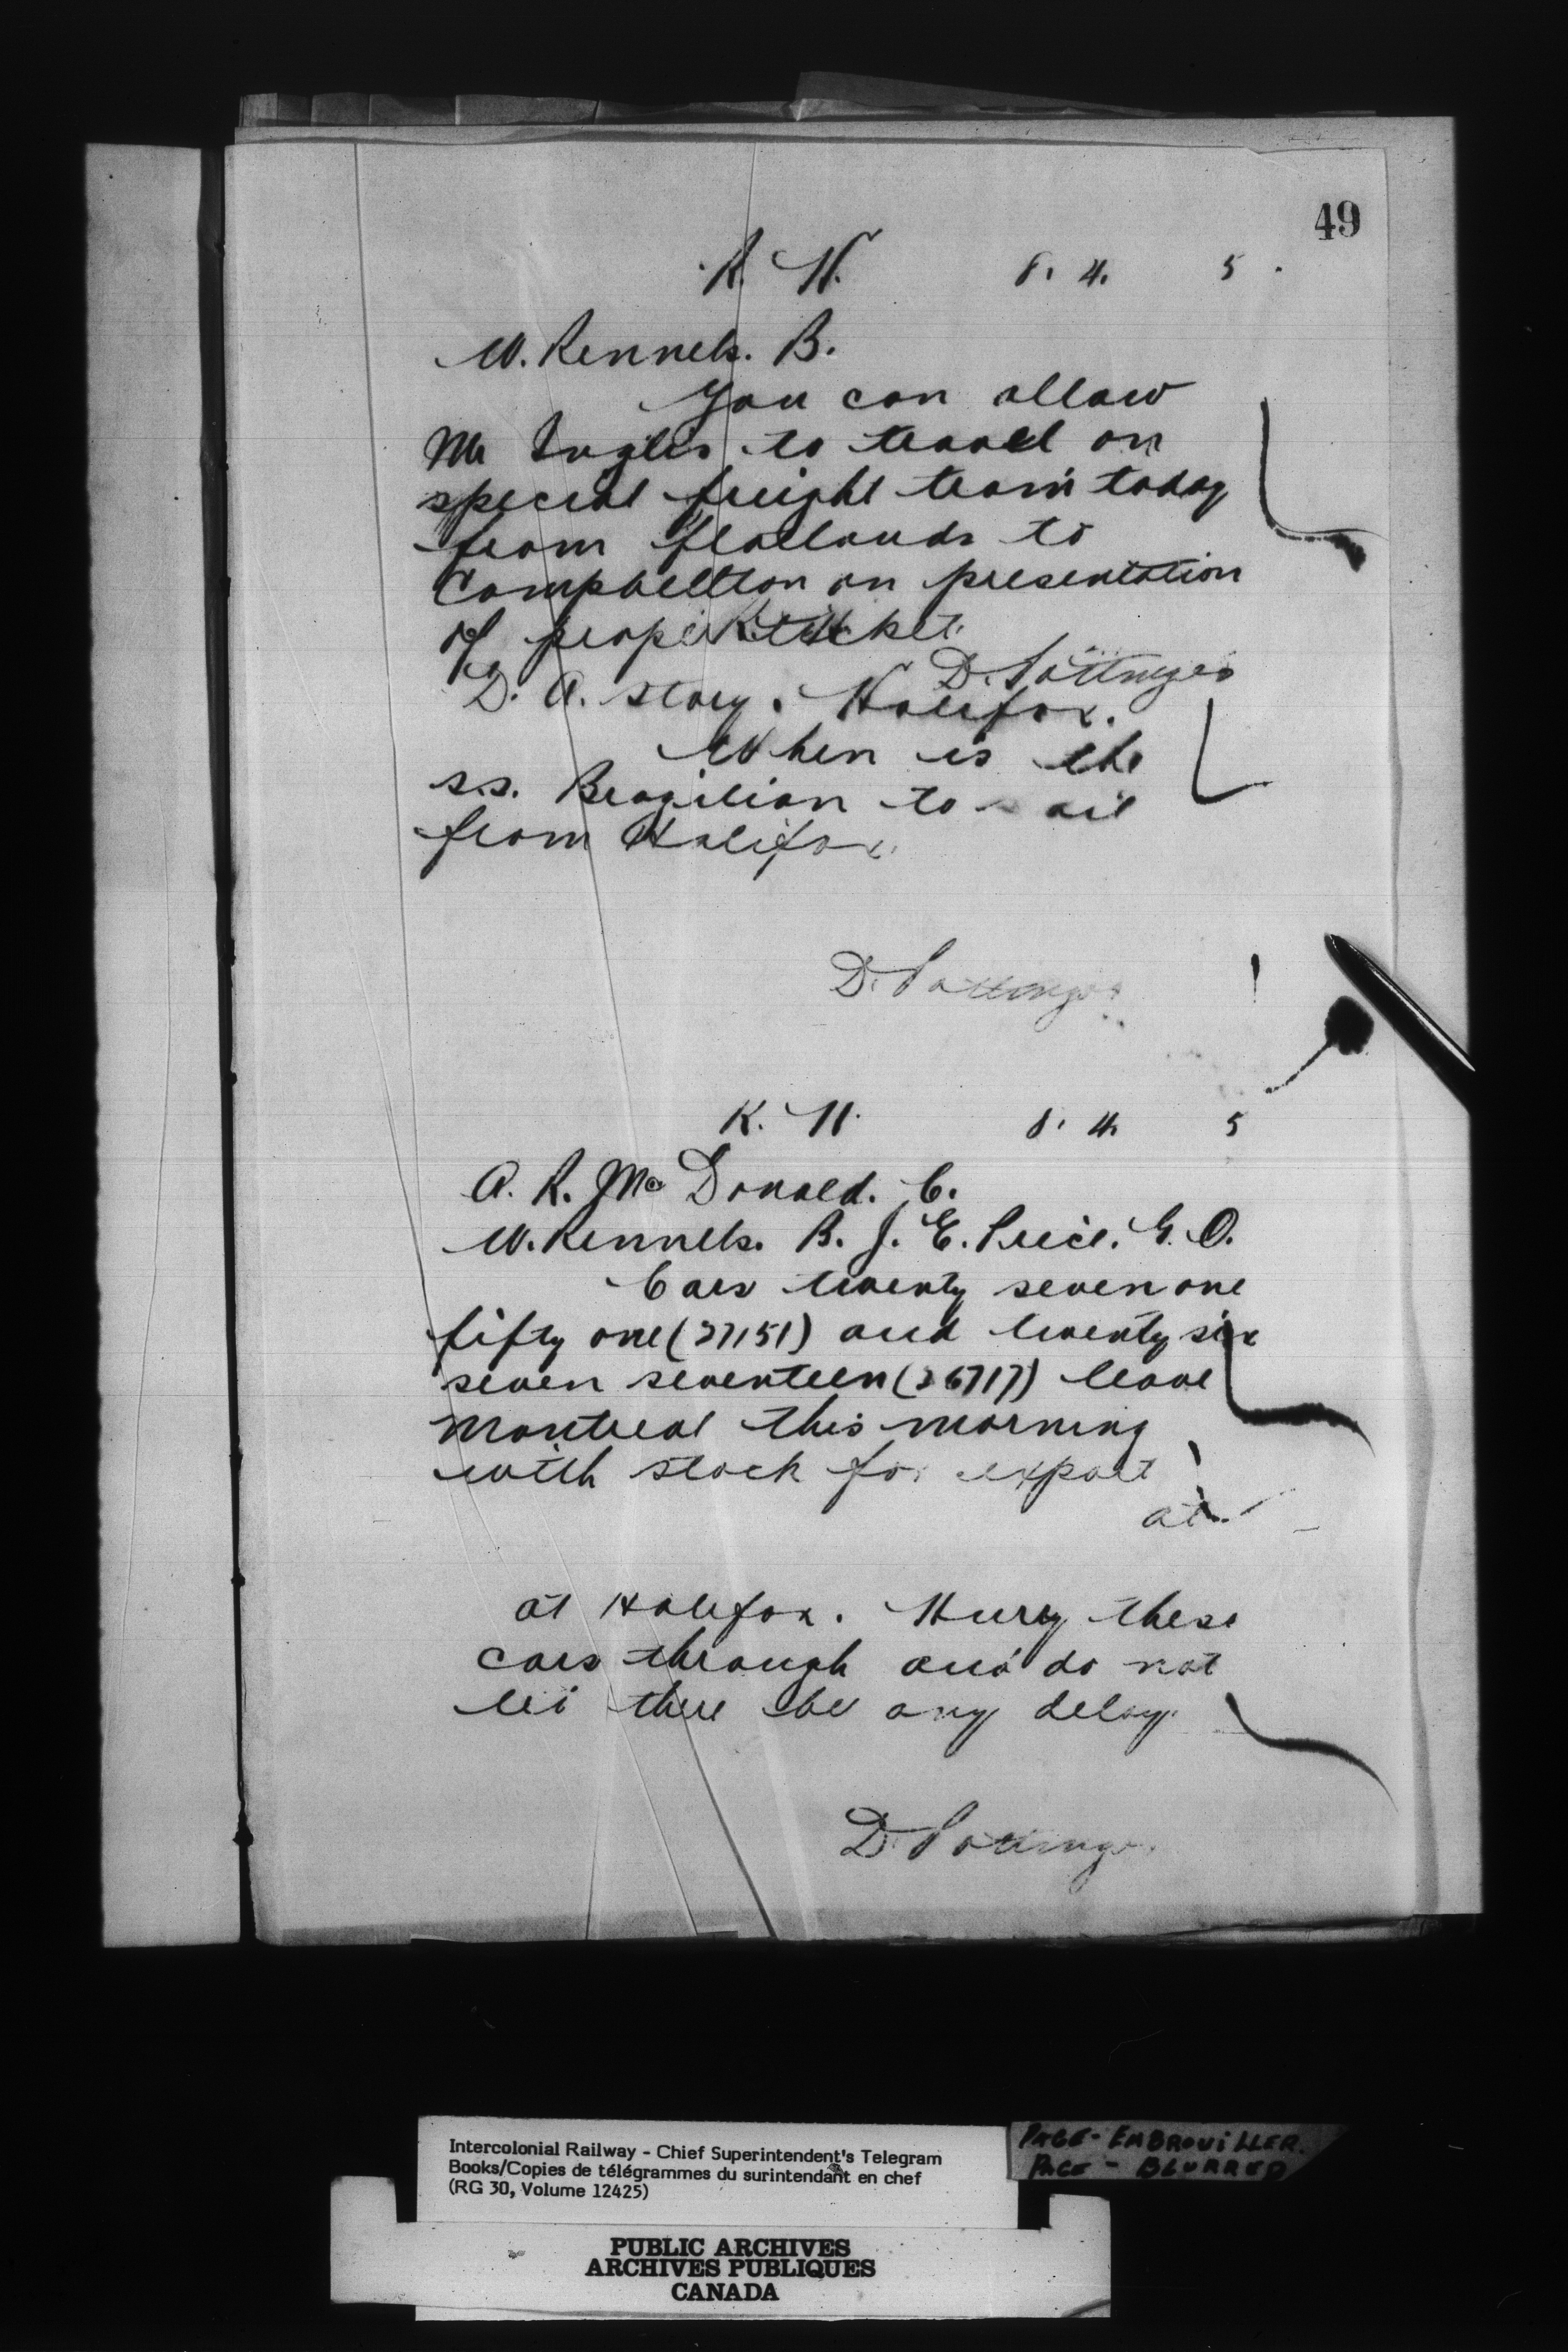 49
K. H. 8. 4. 5.
W. Rennels. B.
You can allow
Mr Inglis to travel on
special freight train today
from flatlands to
Campbellton on presentation
of proper ticket.
D. Pottinger
D. A. Story. Halifax.
When is the
s.s. Brazilian to sail
from Halifax.
D. Pottinger
K. H. 8. 4. 5
A. R. McDonald. C.
W. Rennels. B. J. E. Price. G. O.
Cars twenty seven one
fifty one (27151) and twenty six
seven seventeen (26717) leave
Montreal this morning
with stock for export
at
at Halifax. Hurry these
cars through and do not
let there be any delay.
D. Pottinger
Intercolonial Railway - Chief Superintendent's Telegram
Books/Copies de télégrammes du surintendant en chef
(RG 30, Volume 12425)
PAGE - EMBROUILLER.
PAGE - BLURRED
PUBLIC ARCHIVES
ARCHIVES PUBLIQUES
CANADA